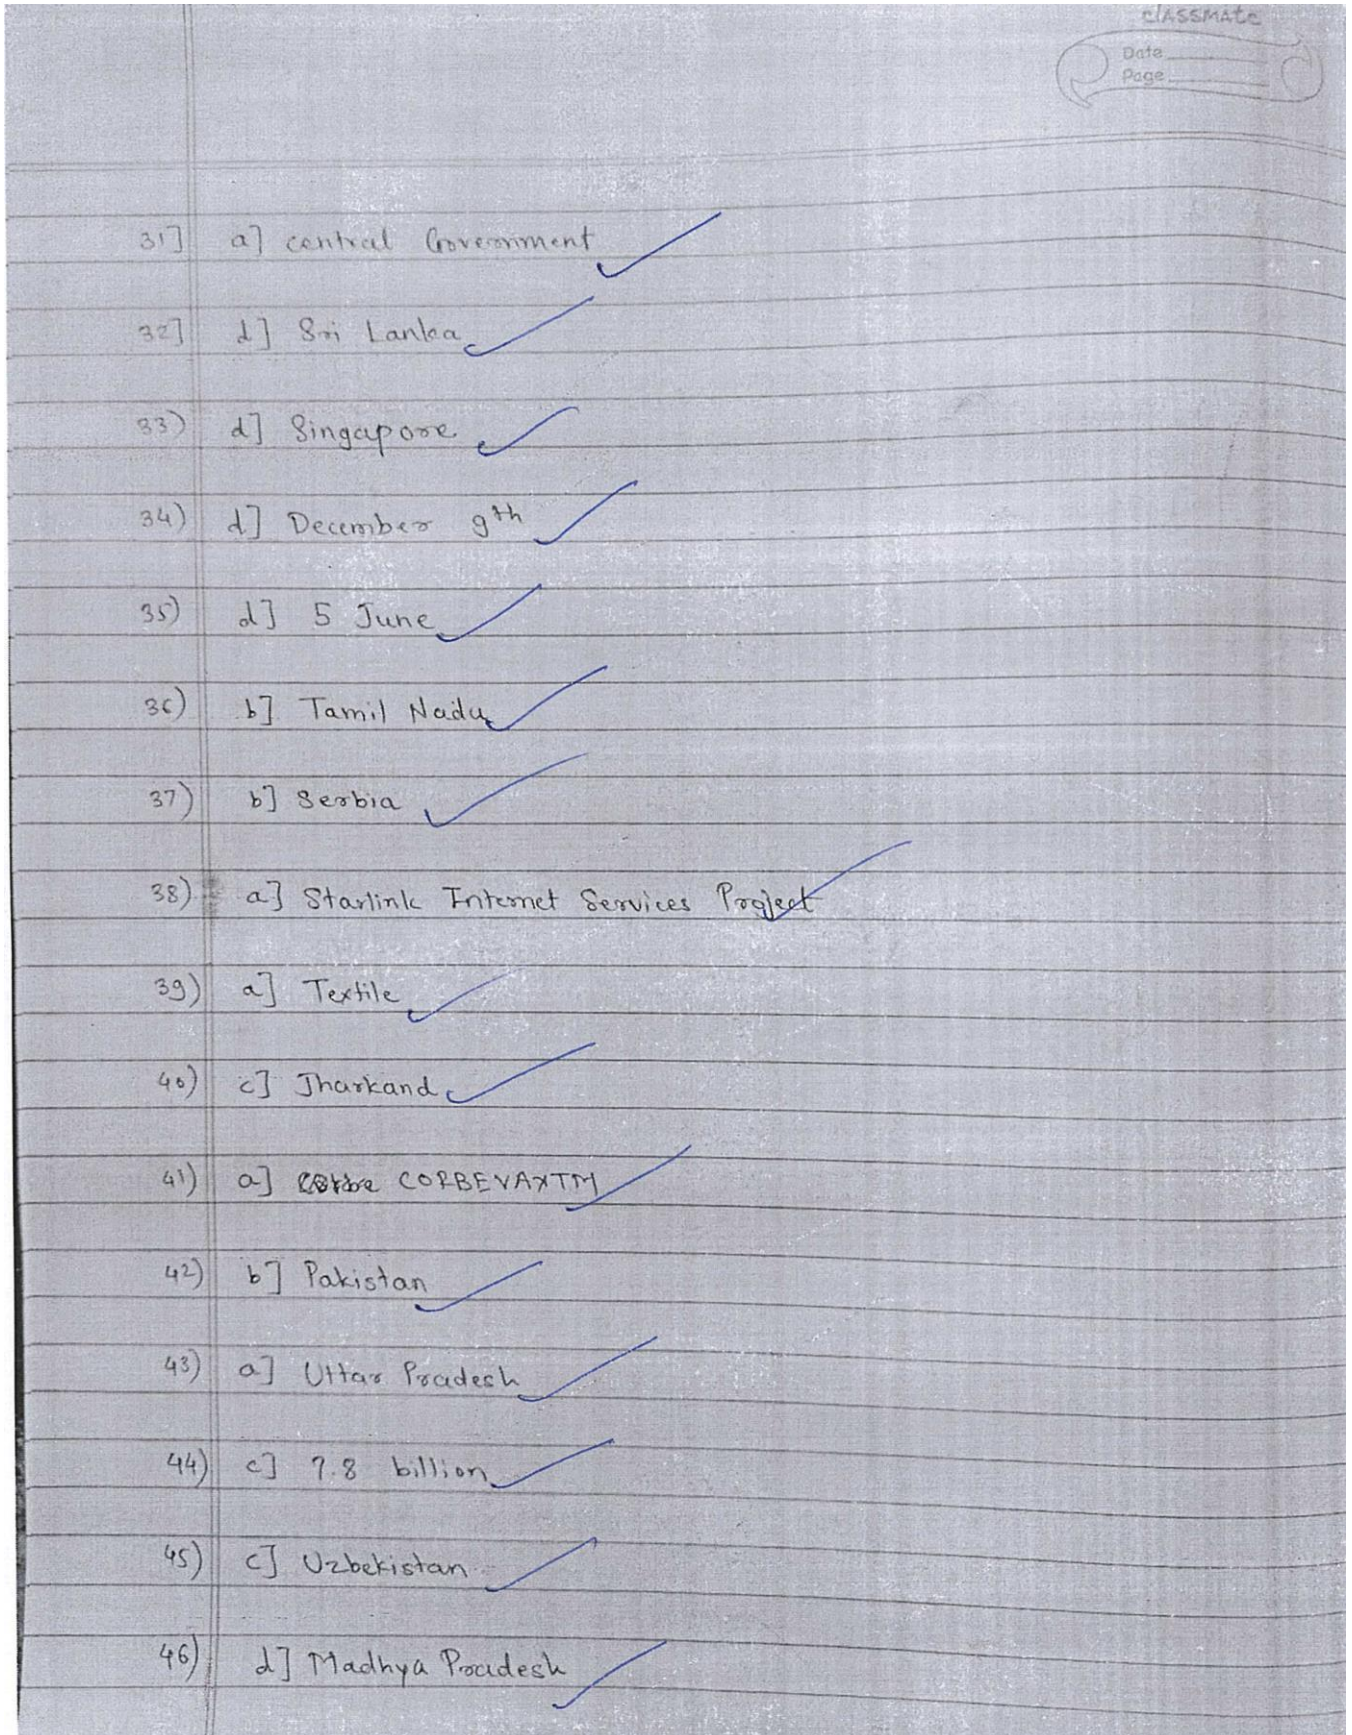 classmate
Date
Page
31] a] central Government
32] d] Sri Lanka
33) d] Singapore
34) d] December 9th
35) d] 5 June
36) b] Tamil Nadu
37) b] Serbia
38) a] Starlink Internet Services Project
39) a] Textile
40) c] Jharkand
41) a] CORBEVAXTM
42) b] Pakistan
43) a] Uttar Pradesh
44) c] 7.8 billion
45) c] Uzbekistan
46) d] Madhya Pradesh